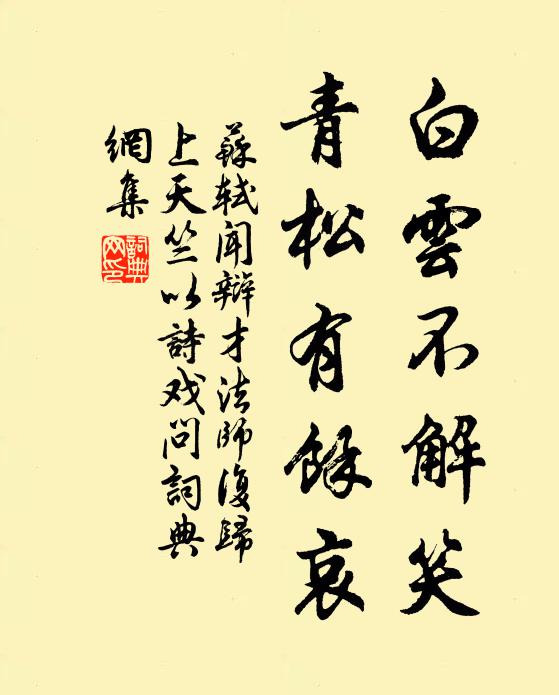 白雲不解笑
青松有餘哀
蘇軾聞辯才法師復歸
上天竺以詩戏问詞典
網集
詞典
网印